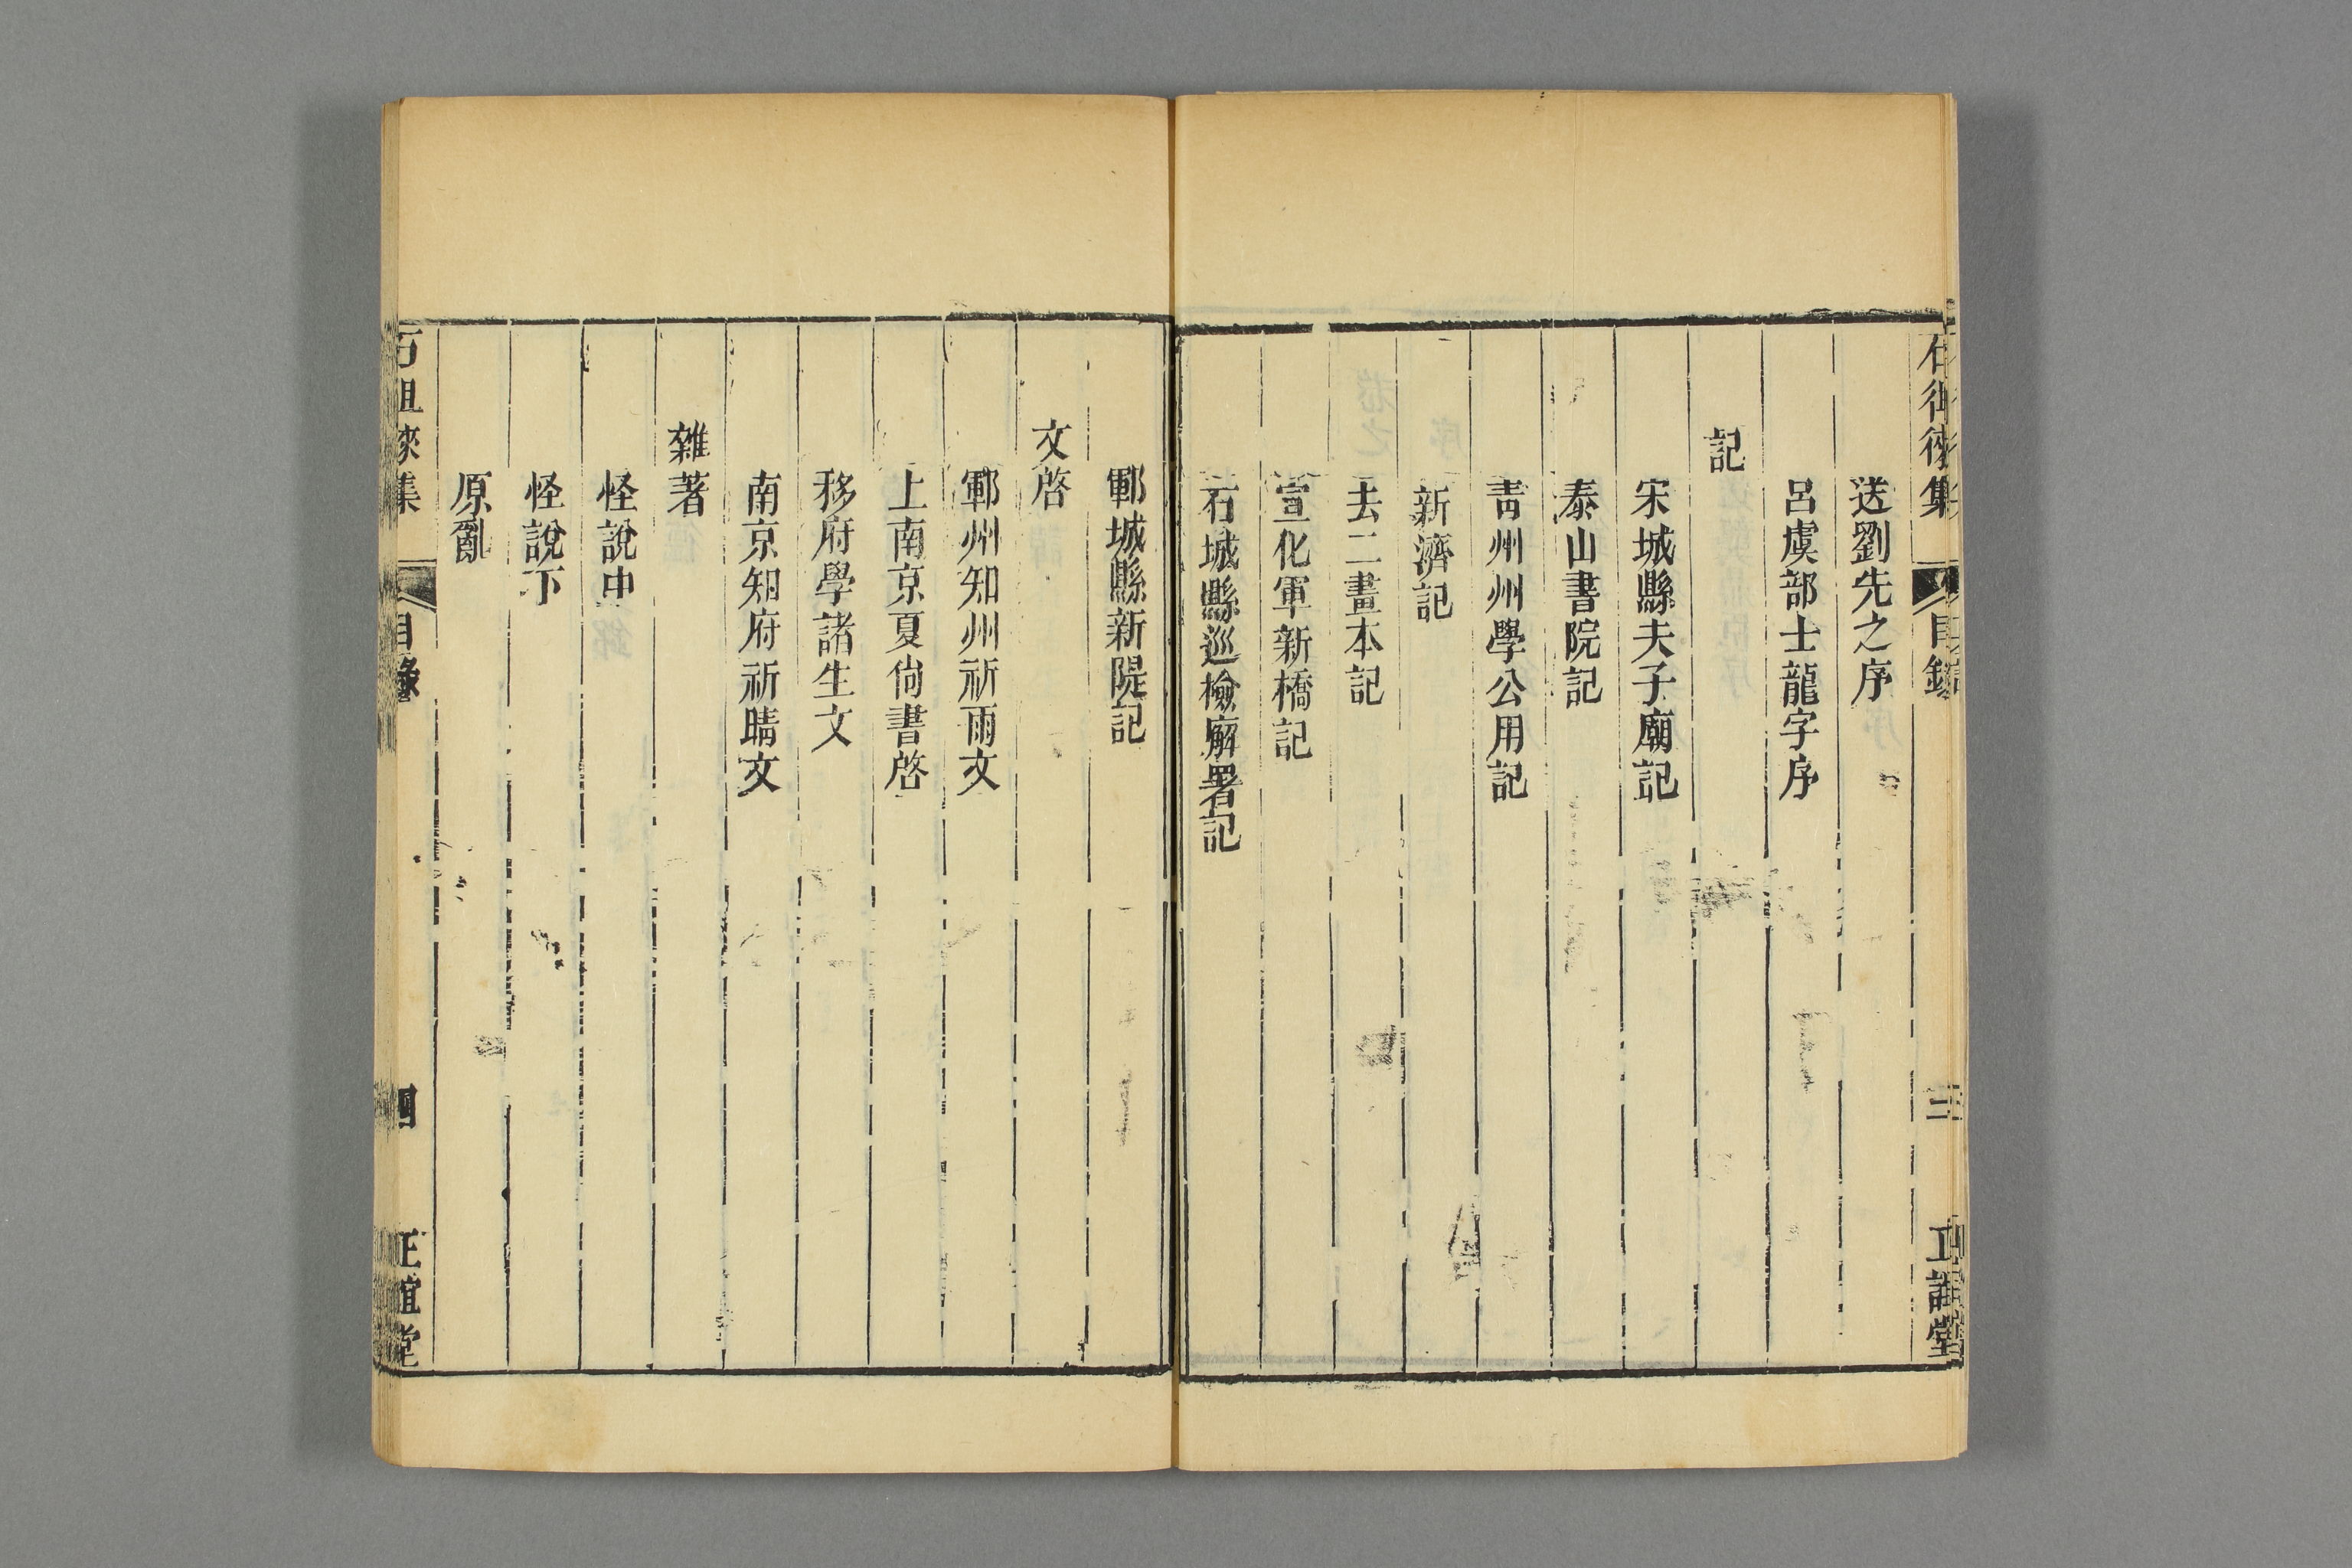 石徂徠集 目錄 三 正誼堂
送劉先之序
呂虞部士龍字序
記
宋城縣夫子廟記
泰山書院記
青州州學公用記
新濟記
去二畫本記
宣化軍新橋記
石城縣巡檢廨署記
鄆城縣新隄記
文啓
鄆州知州祈雨文
上南京夏尙書啓
移府學諸生文
南京知府祈晴文
雜著
怪說中
怪說下
原亂
石徂徠集 目錄 四 正誼堂